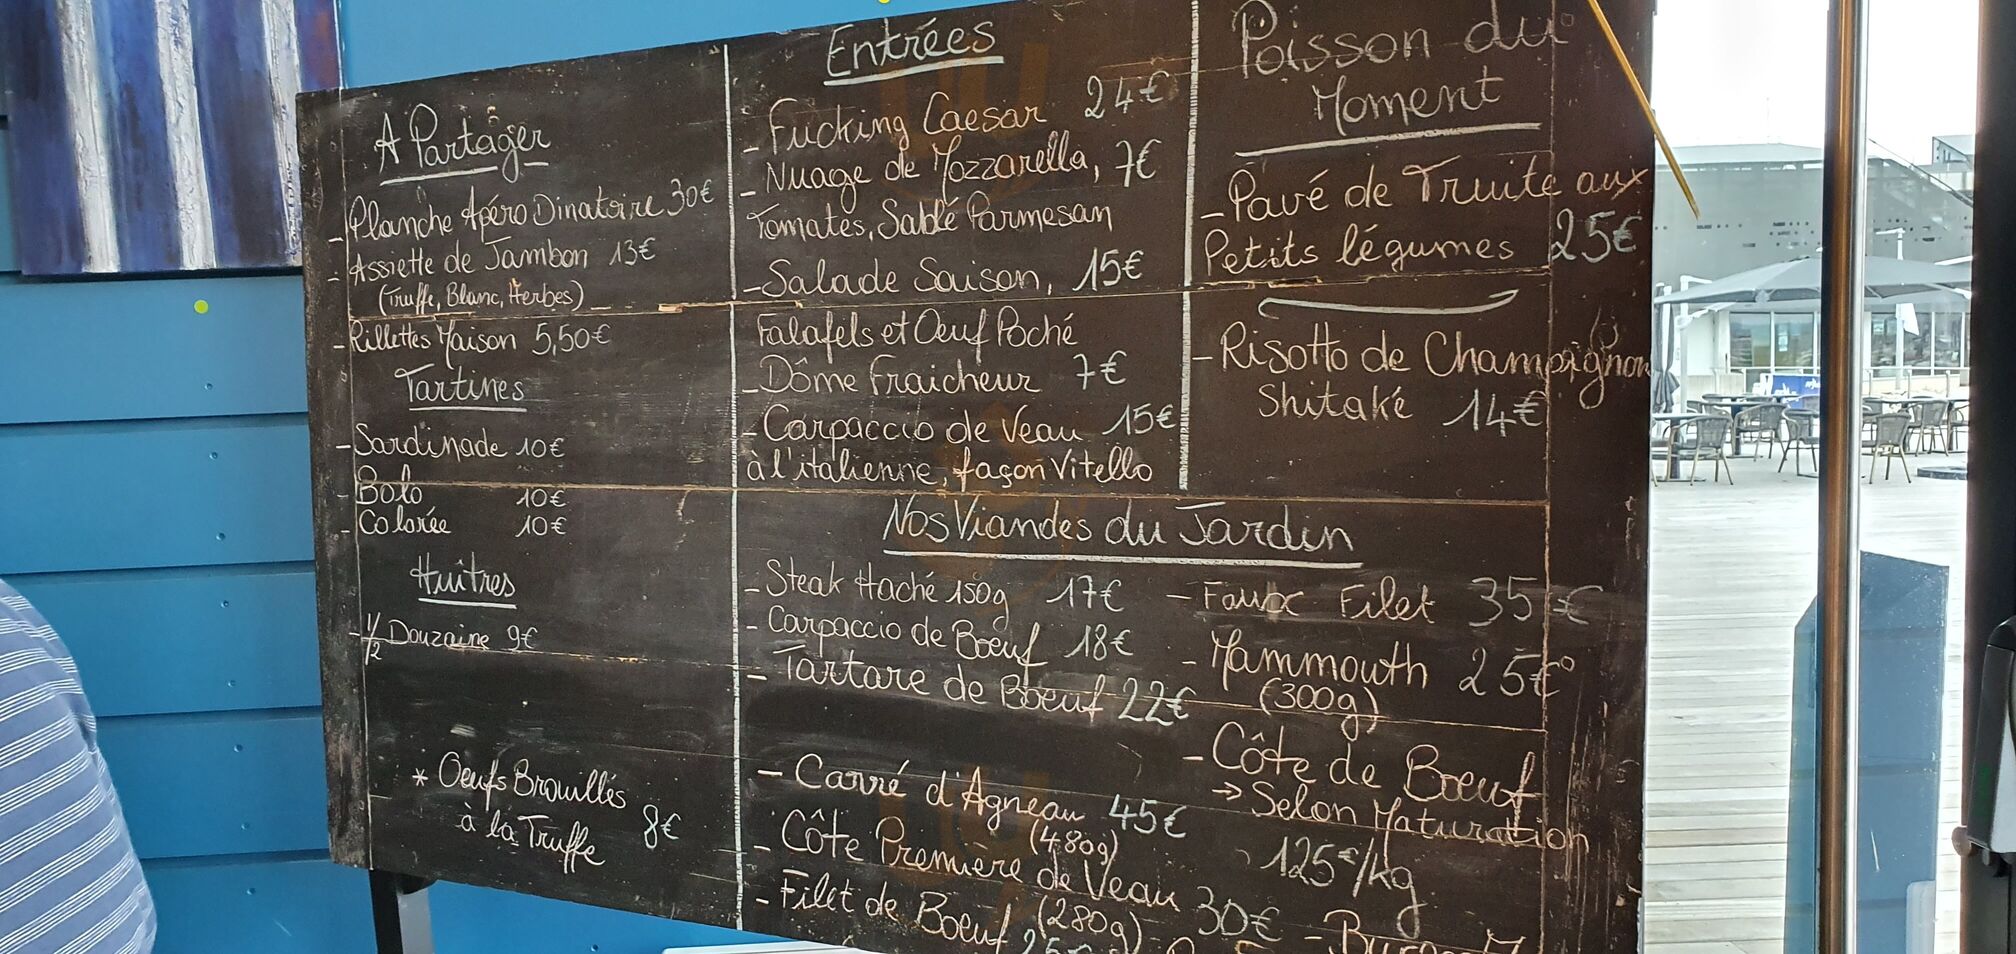 A Partager
- Planche Apéro Dinatoire 30€
- Assiette de Jambon 13€
(Truffe, Blanc, Herbes)
- Rillettes Maison 5,50€
Tartines
- Sardinade 10€
- Bolo 10€
- Colorée 10€
Huîtres
- 1/2 Douzaine 9€
* Oeufs Brouillés
à la Truffe 8€
Entrées
- Fucking Caesar 24€
- Nuage de Mozzarella, 7€
Tomates, Sablé Parmesan
- Salade Saison, 15€
Falafels et Oeuf Poché
- Dôme Fraicheur 7€
- Carpaccio de Veau 15€
à l'italienne, façon Vitello
Poisson du
Moment
- Pavé de Truite aux
Petits légumes 25€
- Risotto de Champignon
Shitaké 14€
Nos Viandes du Jardin
- Steak Haché 150g 17€
- Carpaccio de Boeuf 18€
- Tartare de Boeuf 22€
- Carré d'Agneau 45€
(480g)
- Côte Première de Veau 30€
(280g)
- Filet de Boeuf
- Faux Filet 35€
- Mammouth 25€
(300g)
- Côte de Boeuf
→ Selon Maturation
125€/kg